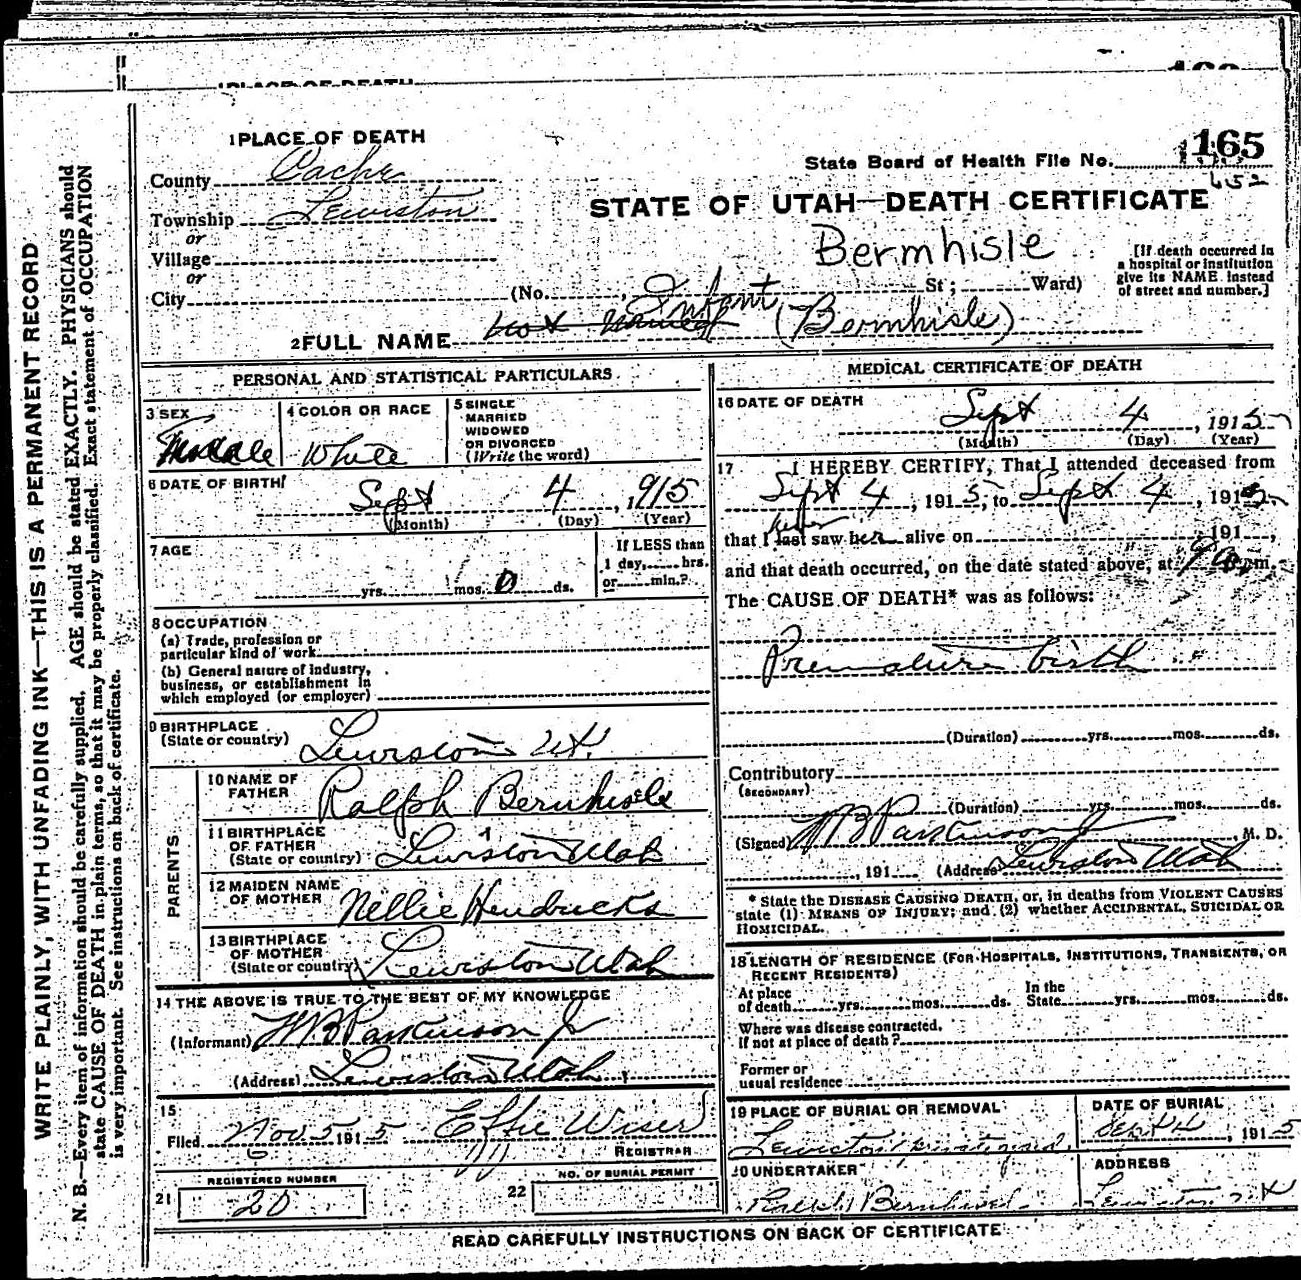 1 PLACE OF DEATH
1 PLACE OF DEATH
County Cache
Township Lewiston
or
Village
or
City
State Board of Health File No. 165
652
STATE OF UTAH—DEATH CERTIFICATE
Bermhisle
(No. St; Ward)
[If death occurred in
a hospital or institution
give its NAME instead
of street and number.]
Infant
2 FULL NAME not named (Bermhisle)
PERSONAL AND STATISTICAL PARTICULARS
3 SEX
4 COLOR OR RACE White
5 SINGLE
MARRIED
WIDOWED
OR DIVORCED
(Write the word)
6 DATE OF BIRTH
Sept 4, 1915
(Month) (Day) (Year)
7 AGE
yrs. mos. 0 ds.
If LESS than
1 day, hrs.
or min.?
8 OCCUPATION
(a) Trade, profession or
particular kind of work
(b) General nature of industry,
business, or establishment in
which employed (or employer)
9 BIRTHPLACE
(State or country) Lewiston Ut.
PARENTS
10 NAME OF
FATHER Ralph Bernhisle
11 BIRTHPLACE
OF FATHER
(State or country) Lewiston Utah
12 MAIDEN NAME
OF MOTHER Nellie Hendricks
13 BIRTHPLACE
OF MOTHER
(State or country) Lewiston Utah
14 THE ABOVE IS TRUE TO THE BEST OF MY KNOWLEDGE
(Informant) W B Parkinson Jr
(Address) Lewiston Utah
15
Filed Nov 5 1915 Effie Wiser
REGISTRAR
REGISTERED NUMBER
21 20
NO. OF BURIAL PERMIT
22
MEDICAL CERTIFICATE OF DEATH
16 DATE OF DEATH
Sept 4, 1915
(Month) (Day) (Year)
17 I HEREBY CERTIFY, That I attended deceased from
Sept 4, 1915, to Sept 4, 1915,
that I last saw her alive on 191 ,
and that death occurred, on the date stated above, at 9 a m.
The CAUSE OF DEATH* was as follows:
Premature birth
(Duration) yrs. mos. ds.
Contributory
(SECONDARY)
(Duration) yrs. mos. ds.
(Signed) W B Parkinson Jr, M. D.
, 191 (Address) Lewiston Utah
* State the DISEASE CAUSING DEATH, or, in deaths from VIOLENT CAUSES
state (1) MEANS OF INJURY; and (2) whether ACCIDENTAL, SUICIDAL OR
HOMICIDAL.
18 LENGTH OF RESIDENCE (FOR HOSPITALS, INSTITUTIONS, TRANSIENTS, OR
RECENT RESIDENTS)
At place
of death yrs. mos. ds.
In the
State yrs. mos. ds.
Where was disease contracted.
If not at place of death?
Former or
usual residence
19 PLACE OF BURIAL OR REMOVAL
Lewiston
DATE OF BURIAL
Sept 4, 1915
20 UNDERTAKER
Ralph Bernhisel
ADDRESS
Lewiston Ut
READ CAREFULLY INSTRUCTIONS ON BACK OF CERTIFICATE
WRITE PLAINLY, WITH UNFADING INK—THIS IS A PERMANENT RECORD
N. B.—Every item of information should be carefully supplied. AGE should be stated EXACTLY. PHYSICIANS should
state CAUSE OF DEATH in plain terms, so that it may be properly classified. Exact statement of OCCUPATION
is very important. See instructions on back of certificate.